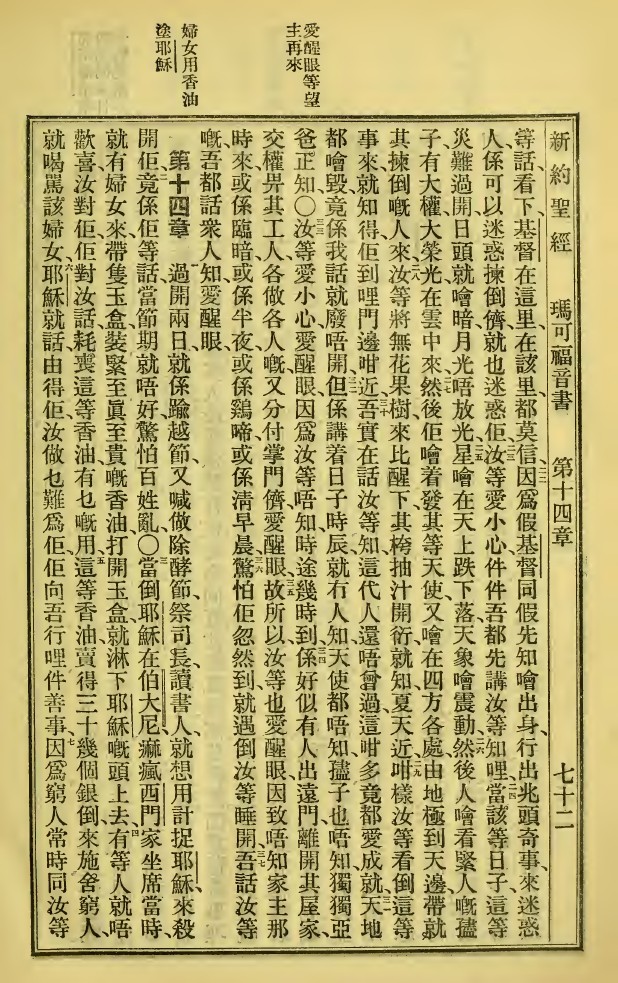 愛醒眼等望
主再來
婦女用香油
塗耶穌
新約聖經 瑪可福音書 第十四章 七十二
等話、看下、基督在這里、在該里、都莫信、二二因爲假基督同假先知噲出身、行出兆頭奇事、來迷惑
人、係可以迷惑揀倒儕就也迷惑佢、二三汝等愛小心、件件吾都先講汝等知哩、二四當該等日子、這等
災難過開、日頭就噲暗、月光唔放光、二五星噲在天上跌下落、天象噲震動、二六然後人噲看緊人嘅孻
子、有大權大榮光、在雲中來、二七然後佢噲着發其等天使、又噲在四方各處、由地極到天邊、帶就
其揀倒嘅人來、二八汝等將無花果樹來比醒下、其桍抽汁開𥬠、就知夏天近、二九咁樣汝等看倒這等
事來、就知得佢到哩門邊咁近、三十吾實在話汝等知、這代人還唔曾過、這咁多竟都愛成就、三一天地
都噲毀、竟係我話就廢唔開、三二但係講着日子時辰、就冇人知、天使都唔知、孻子也唔知、獨獨亞
爸正知○三三汝等愛小心、愛醒眼、因爲汝等唔知時途幾時到、三四係好似有人出遠門、離開其屋家、
交權畀其工人、各做各人嘅、又分付掌門儕愛醒眼、三五故所以汝等也愛醒眼、因致唔知家主那
時來、或係臨暗、或係半夜、或係鷄啼、或係清早晨、三六驚怕佢忽然到、就遇倒汝等睡開、三七吾話汝等
嘅、吾都話衆人知、愛醒眼
第十四章 一過開兩日、就係踰越節、又喊做除酵節、祭司長讀書人、就想用計捉耶穌來殺
開佢、二竟係佢等話、當節期就唔好、驚怕百姓亂○三當倒耶穌在伯大尼痲瘋西門家坐席當時、
就有婦女來、帶隻玉盒、裝緊至眞至貴嘅香油、打開玉盒、就淋下耶穌嘅頭上去、四有等人就唔
歡喜、汝對佢佢對汝話、耗喪這等香油有乜嘅用、五這等香油、賣得三十幾個銀倒、來施舍窮人、
就喝罵該婦女、六耶穌就話、由得佢、汝做乜難爲佢、佢向吾行哩件善事、七因爲窮人常時同汝等